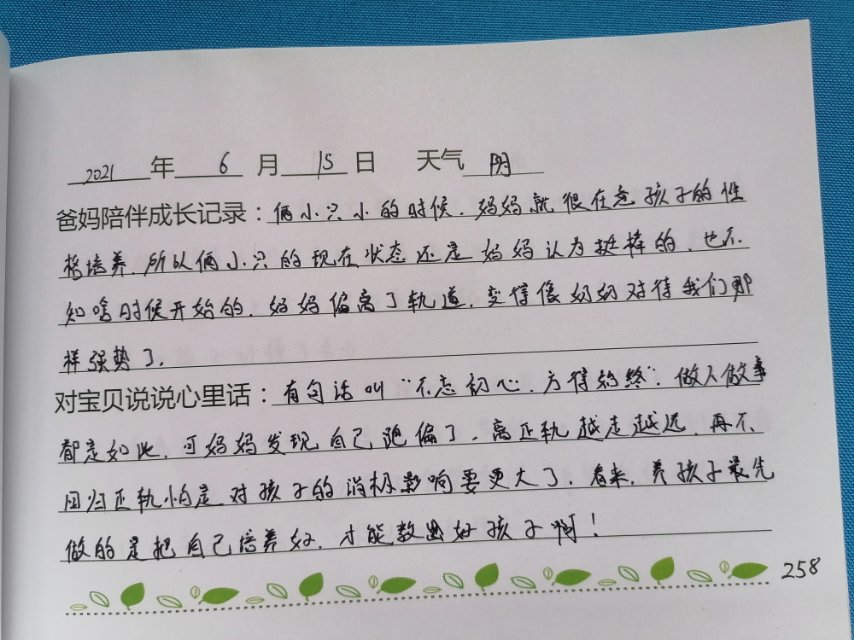 2021年6月15日 天气 阴
爸妈陪伴成长记录：俩小只小的时候，妈妈就很在意孩子的性
格培养，所以俩小只的现在状态还是妈妈认为挺棒的，也不
知啥时候开始的，妈妈偏离了轨道，变得像奶奶对待我们那
样强势了。
对宝贝说说心里话：有句话叫“不忘初心，方得始终”，做人做事
都是如此，可妈妈发现自己跑偏了，离正轨越走越远，再不
回归正轨怕是对孩子的消极影响要更大了，看来，养孩子最先
做的是把自己培养好，才能教出好孩子啊！
258